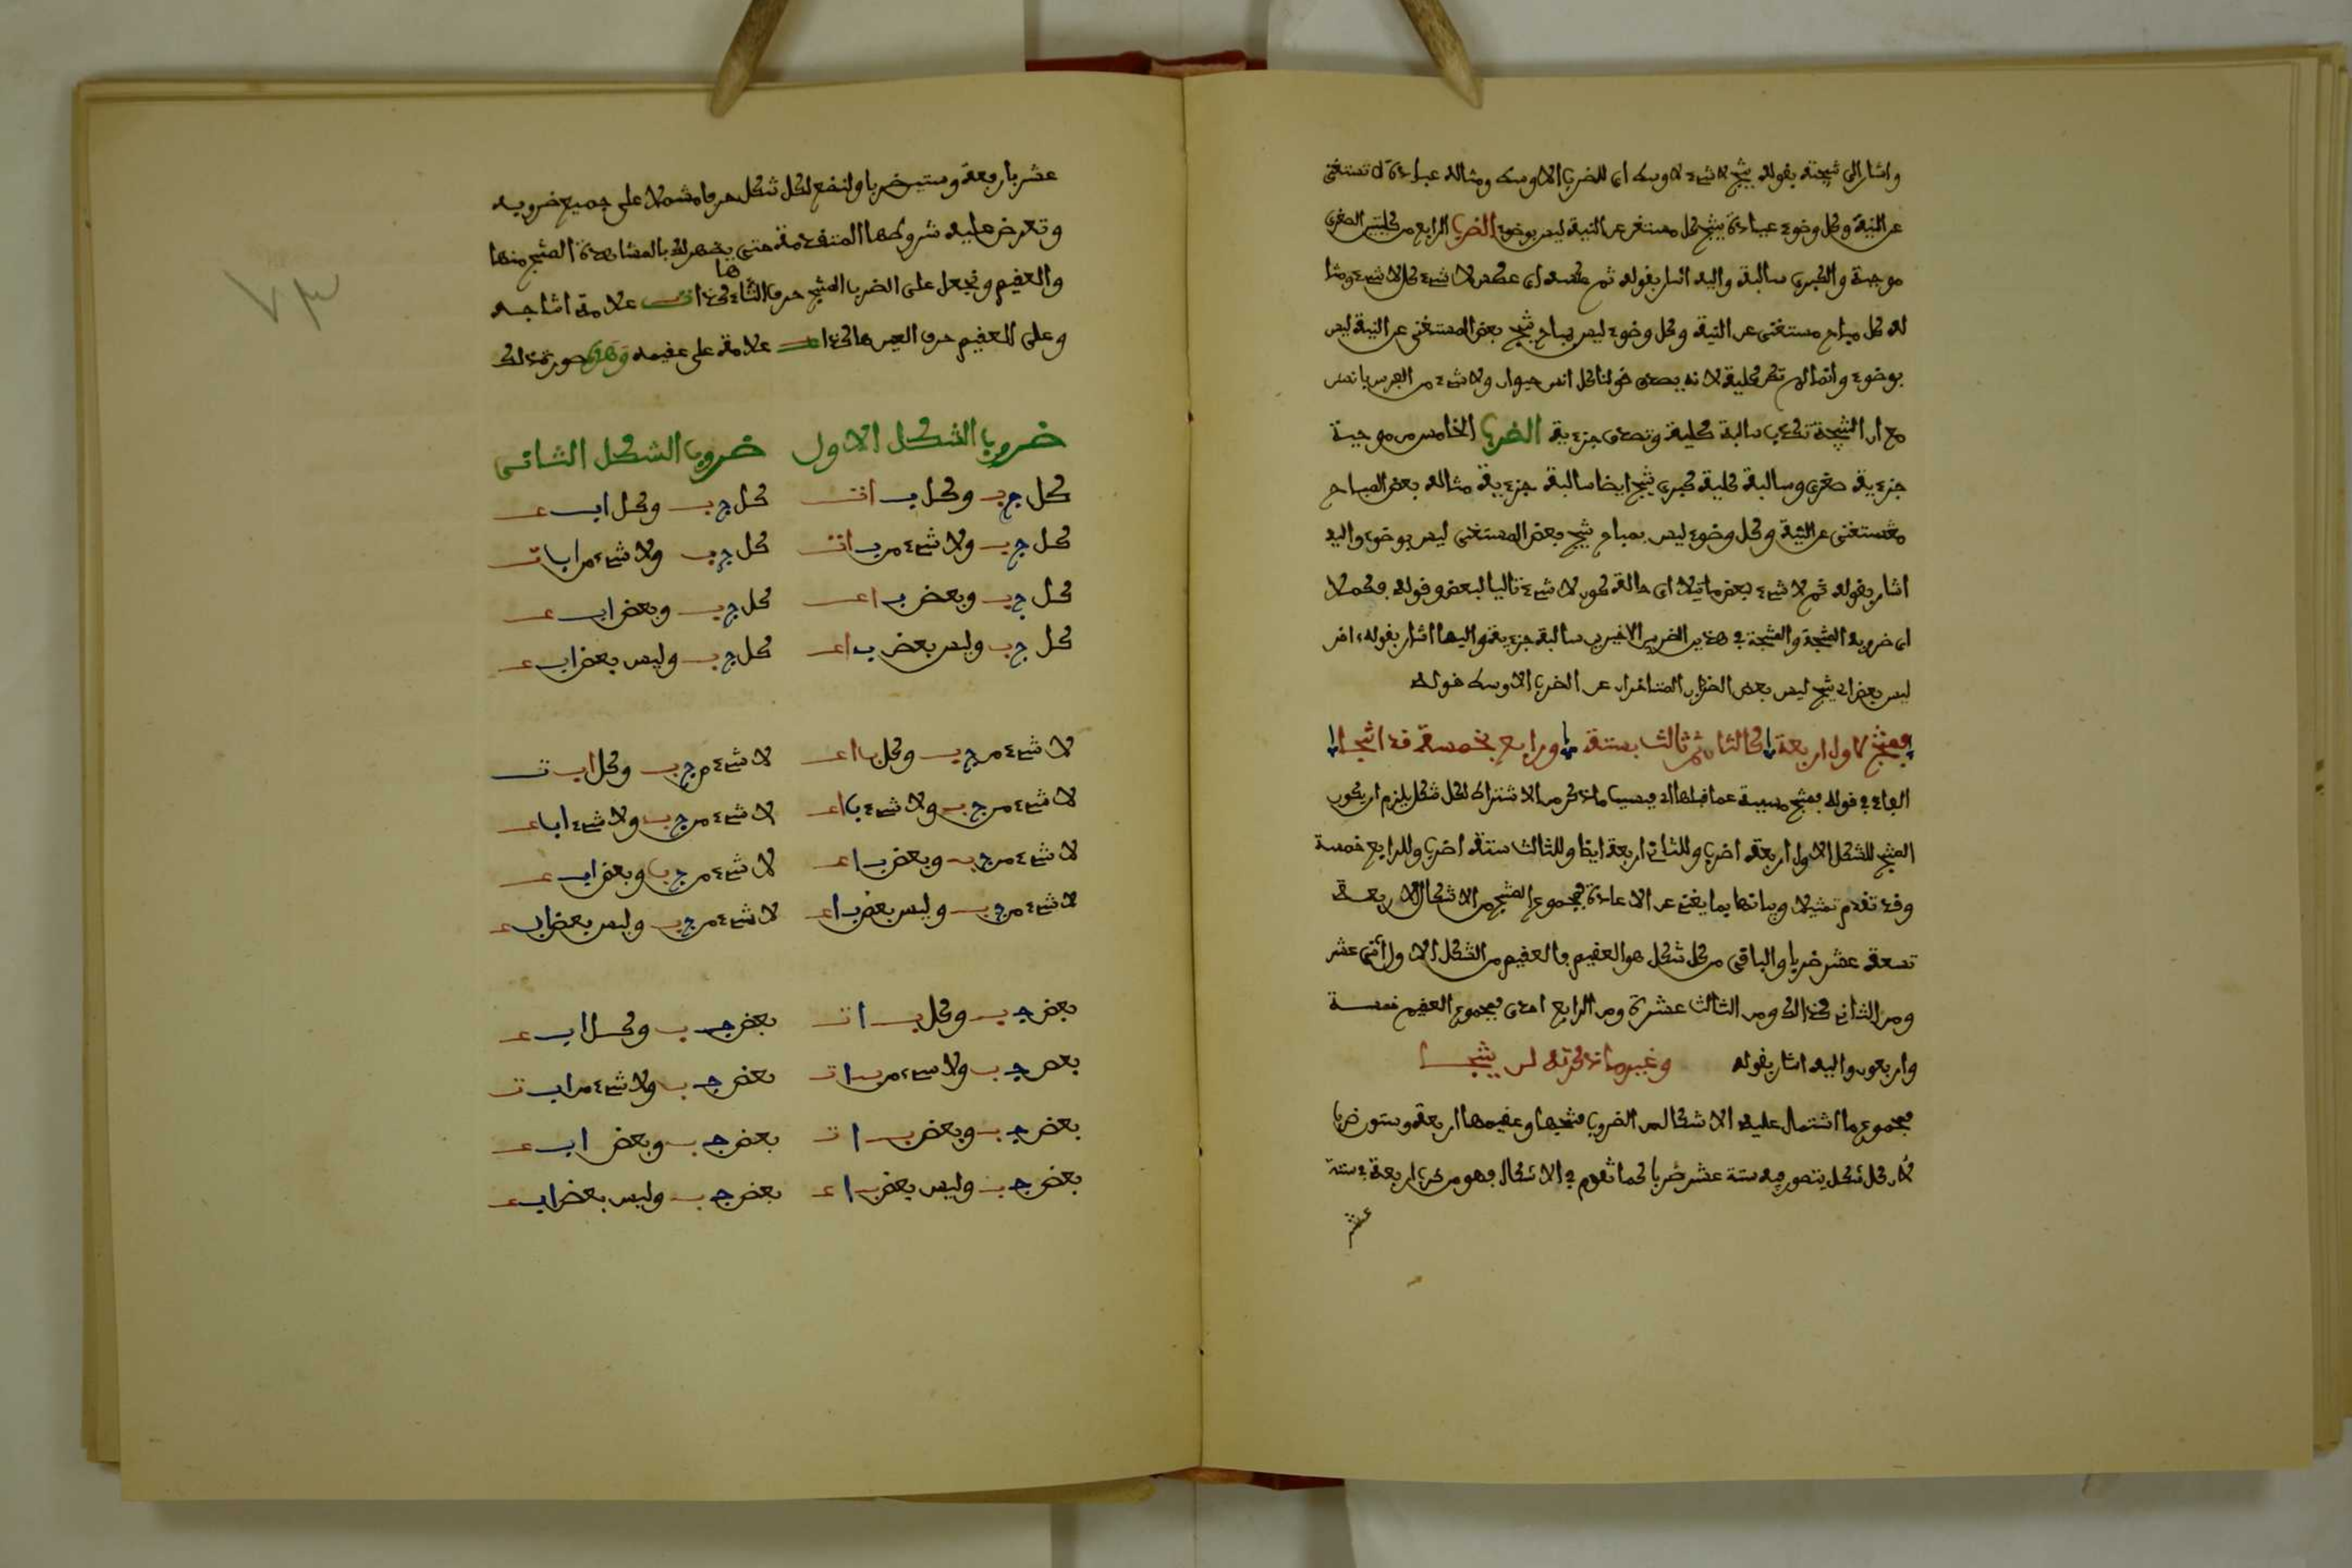 واشار الى نتيجته بقوله ينتج لا شيء لا وسط اى للضرب الاوسط ومثاله عبادة لا تستغنى
عن النية وكل وضوء عبادة ينتج كل مستغن عن النية ليس بوضوء الضرب الرابع من كليتين الصغرى
موجبة والكبرى سالبة واليه اشار بقوله ثم عكسه اى عكس لا شيء كل لا شيء ومثا
له كل مباح مستغنى عن النية وكل وضوء ليس بمباح ينتج بعض المستغنى عن النية ليس
بوضوء وانما لم تكن كلية لانه يصدق قولنا كل انس حيوان ولا شيء من الفرس بانس
مع ان النتيجة تكذب سالبة كلية وتصدق جزءية الضرب الخامس من موجبة
جزءية صغرى وسالبة كلية كبرى ينتج ايضا سالبة جزءية مثاله بعض المباح
مستغنى عن النية وكل وضوء ليس بمباح ينتج بعض المستغنى ليس بوضوء واليه
اشار بقوله ثم لا شيء بعض ما تلا اى حالة كون لا شيء تاليا لبعض وقوله فكملا
اى ضروبه المنتجة والنتيجة في هذين الضربين الاخيرين سالبة جزءية واليها اشار بقوله
ليس بعض اى ينتج ليس بعض الضربان المتاخران عن الضرب الاوسط قوله
فمنتج لاول اربعة كالثان ثم ثالث بستة ورابع بخمسة قد انتجا
الفاء في قوله فمنتج مسببة عما قبلها اى فبسبب ما ذكر من الاشتراط لكل شكل يلزم ان يكون
المنتج للشكل الاول اربعة اضرب وللثانى اربعة ايضا وللثالث ستة اضرب وللرابع خمسة
وقد تقدم تمثيلا وبيانها بما يغنى عن الاعادة فمجموع المنتج من الاشكال الاربعة
تسعة عشر ضربا والباقى من كل شكل هو العقيم فالعقيم من الشكل الاول اثنى عشر
ومن الثانى كذالك ومن الثالث عشرة ومن الرابع احدى فمجموع العقيم خمسة
واربعون واليه اشار بقوله وغير ما ذكرته لن ينتجا
مجموع ما اشتمل عليه الاشكال من الضروب منتجها وعقيمها اربعة وستون ضربا
لان كل شكل يتصور فيه ستة عشر ضربا كما تقوم في الاشكال فهو من ضرب اربعة في ستة
عشر
عشر باربعة وستين ضربا ولنضع لكل شكل حرفا مشملا على جميع ضروبه
وتعرض عليه شروطها المتقدمة حتى يظهر لك بالمشاهدة المنتج منها
والعقيم ونجعل على الضرب المنتج حرف التاء هاكذا ت علامة انتاجه
وعلى العقيم حرف العين هاكذا ع علامة على عقيمه وهذه صورة ذلك
٧٣
ضروب الشكل الاول ضروب الشكل الثانى
كل ج ب وكل ب ا ت كل ج ب وكل ا ب ع
كل ج ب ولا شيء من ب ا ت كل ج ب ولا شيء من ا ب ت
كل ج ب وبعض ب ا ع كل ج ب وبعض ا ب ع
كل ج ب وليس بعض ب ا ع كل ج ب وليس بعض ا ب ع
لا شيء من ج ب وكل ب ا ع لا شيء من ج ب وكل ا ب ت
لا شيء من ج ب ولا شيء ب ا ع لا شيء من ج ب ولا شيء ا ب ع
لا شيء من ج ب وبعض ب ا ع لا شيء من ج ب وبعض ا ب ع
لا شيء من ج ب وليس بعض ب ا ع لا شيء من ج ب وليس بعض ا ب ع
بعض ج ب وكل ب ا ت بعض ج ب وكل ا ب ع
بعض ج ب ولا شيء من ب ا ت بعض ج ب ولا شيء من ا ب ت
بعض ج ب وبعض ب ا ت بعض ج ب وبعض ا ب ع
بعض ج ب وليس بعض ب ا ع بعض ج ب وليس بعض ا ب ع